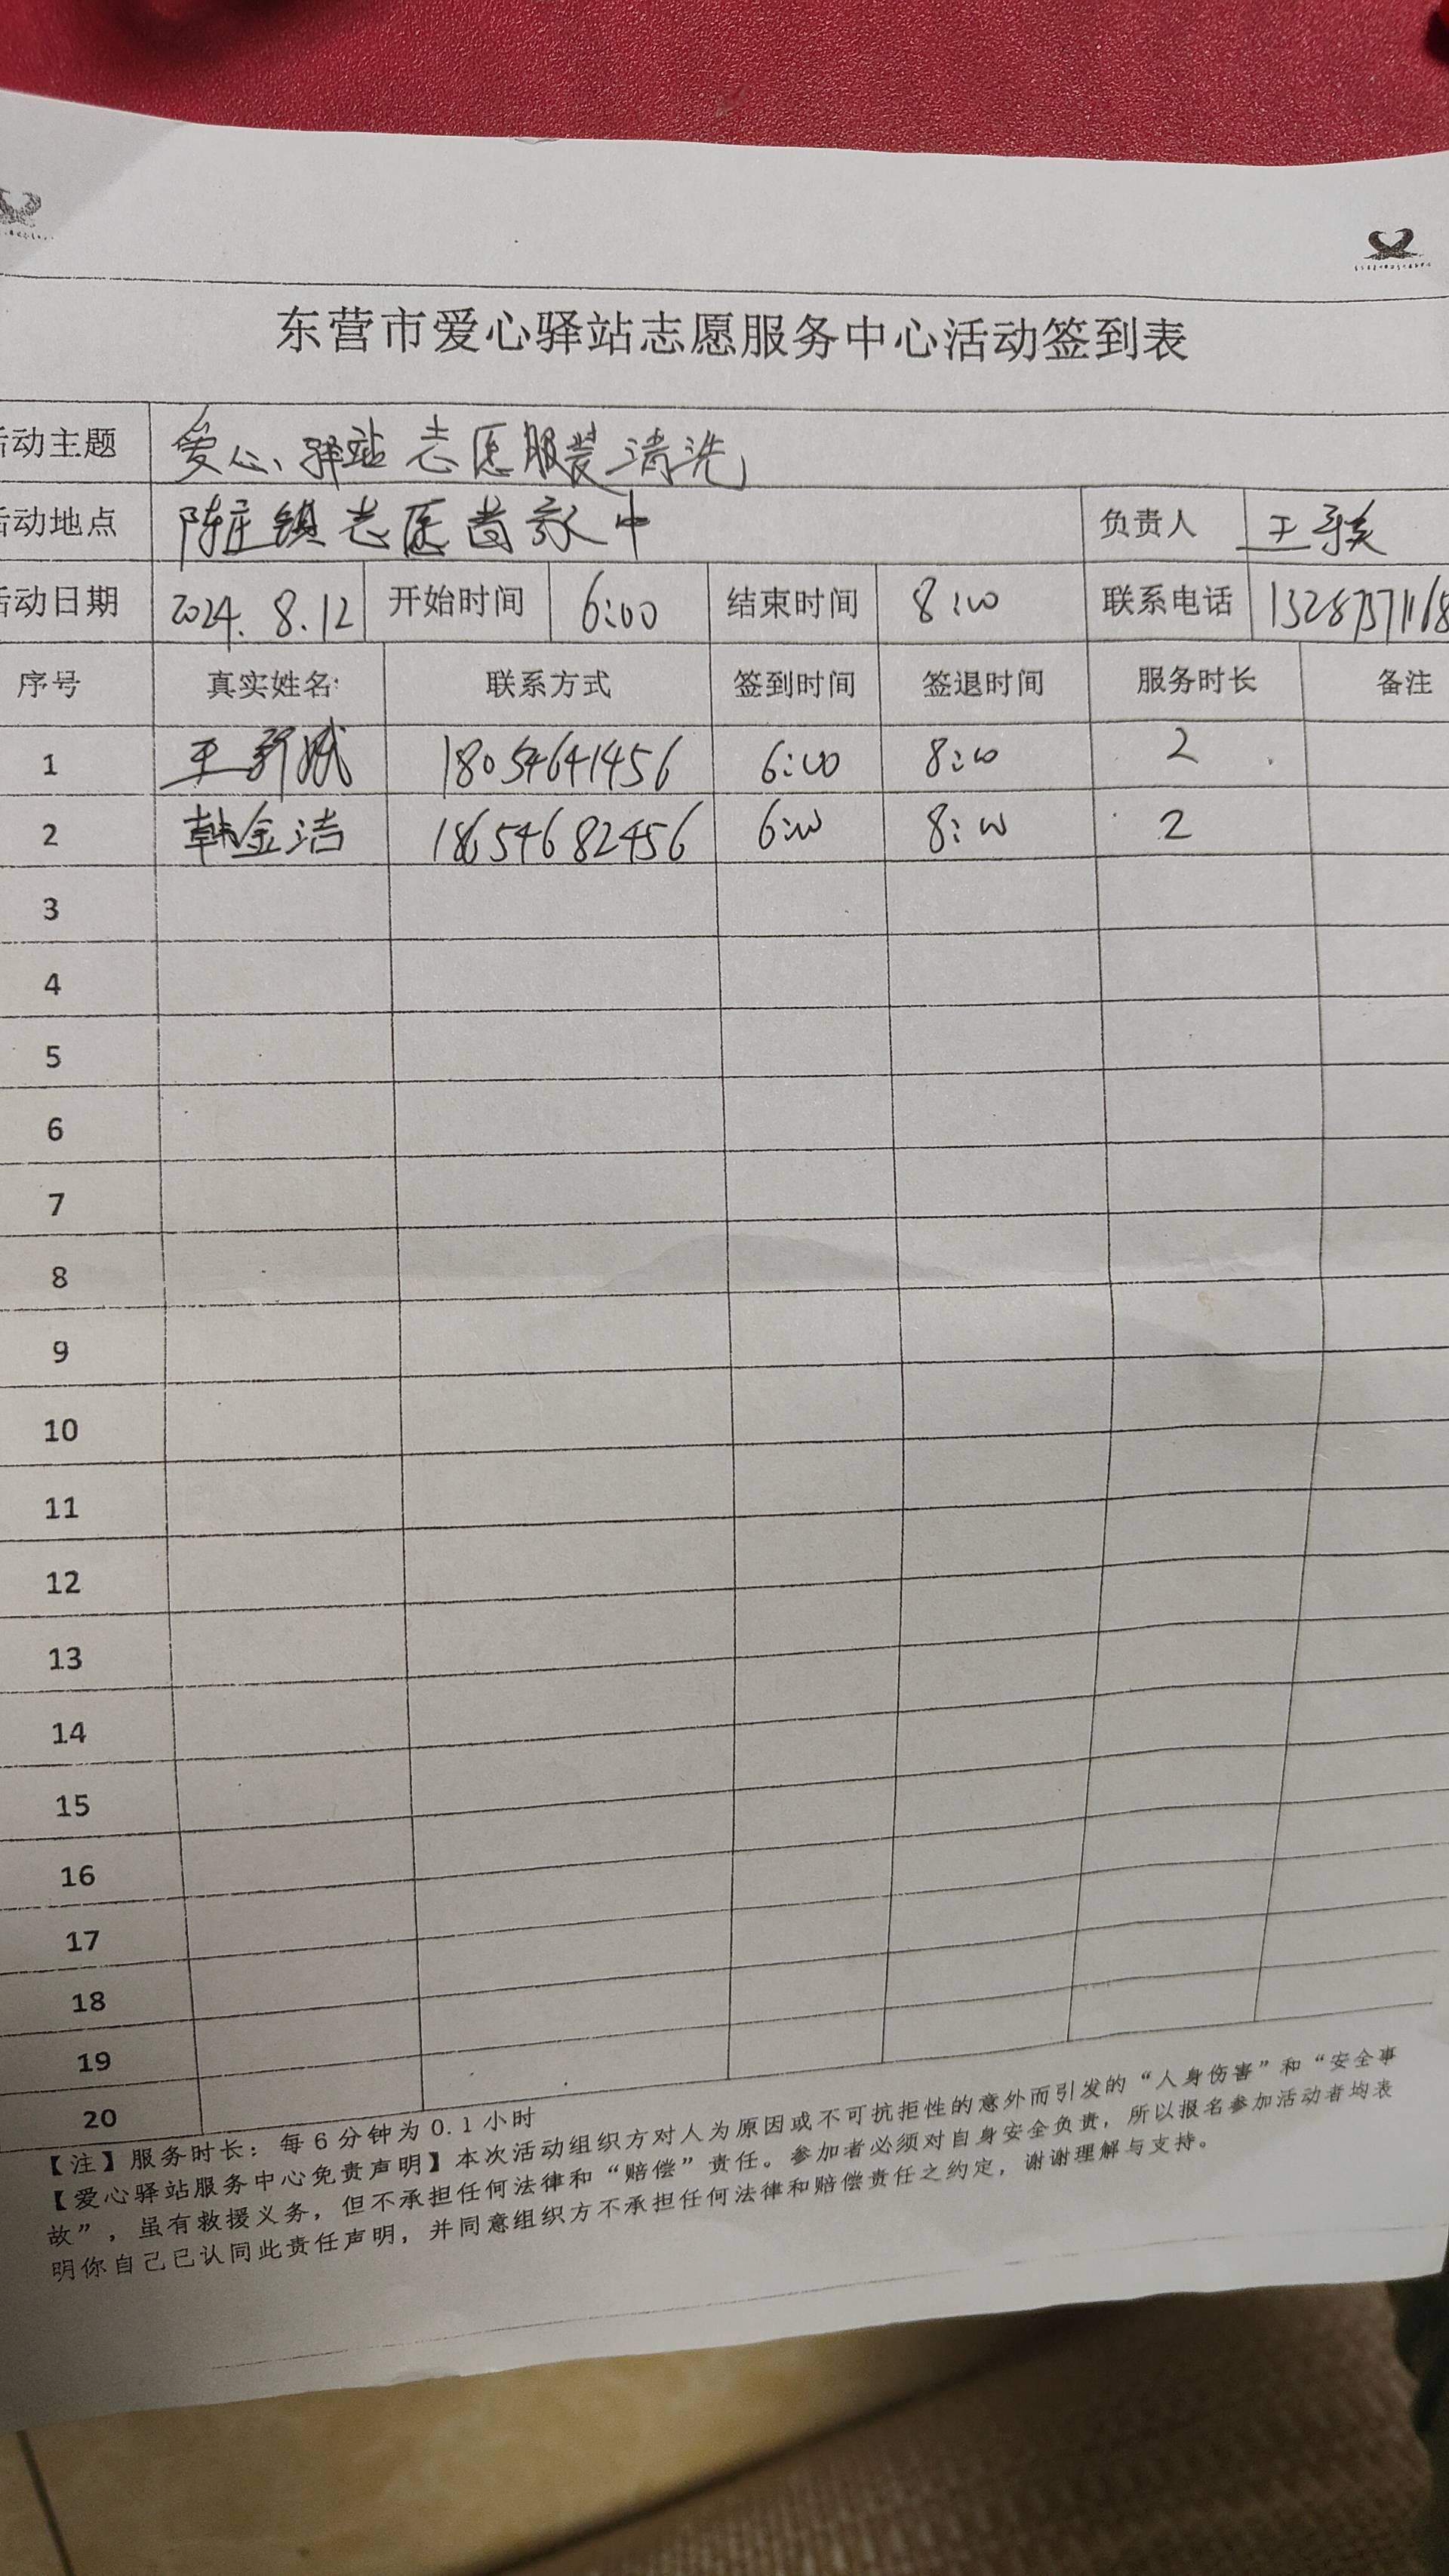 东营市爱心驿站志愿服务中心活动签到表
活动主题 爱心驿站志愿服装清洗
活动地点 陈庄镇志愿者 中 负责人 王
活动日期 2024.8.12 开始时间 6:00 结束时间 8:00 联系电话
序号 真实姓名 联系方式 签到时间 签退时间 服务时长 备注
1 王新斌 18054641456 6:00 8:00 2
2 韩金洁 18654682456 6:00 8:00 2
3
4
5
6
7
8
9
10
11
12
13
14
15
16
17
18
19
20
【注】服务时长：每6分钟为0.1小时
【爱心驿站服务中心免责声明】本次活动组织方对人为原因或不可抗拒性的意外而引发的“人身伤害”和“安全事
故”，虽有救援义务，但不承担任何法律和“赔偿”责任。参加者必须对自身安全负责，所以报名参加活动者均表
明你自己已认同此责任声明，并同意组织方不承担任何法律和赔偿责任之约定，谢谢理解与支持。